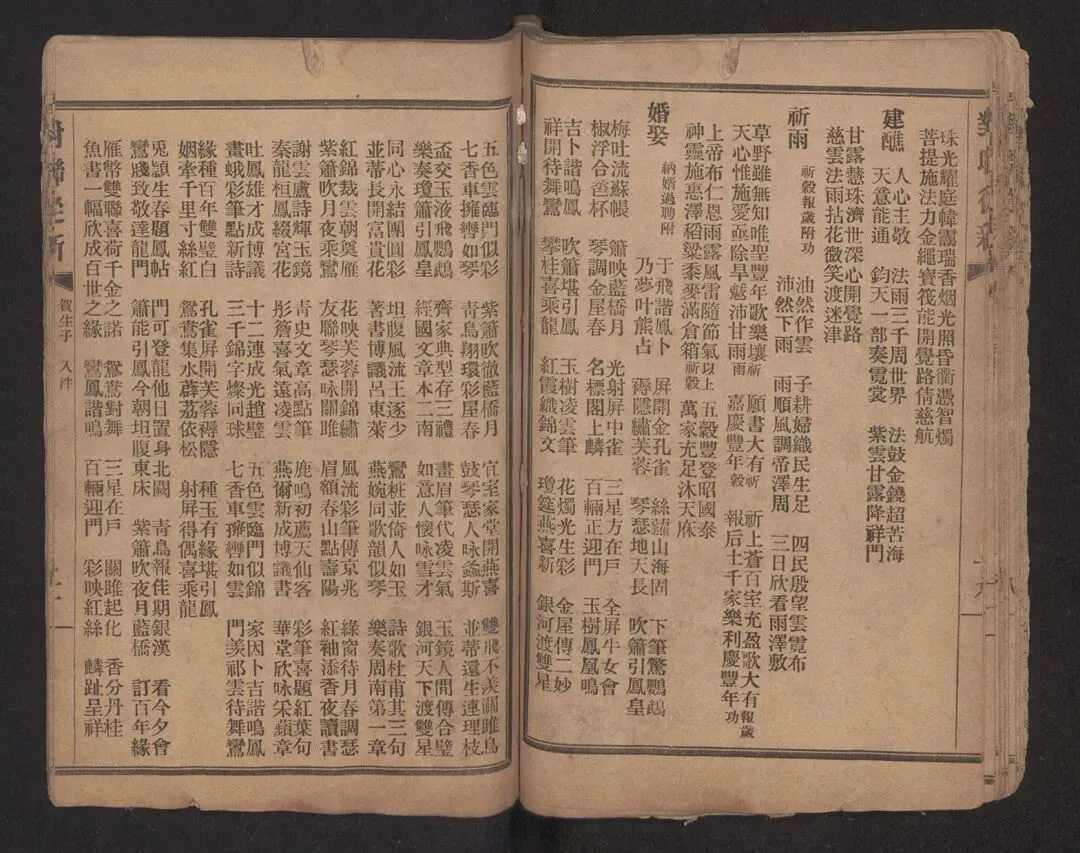 珠光耀庭幃靄瑞香烟光照昏衢憑智燭
菩提施法力金繩寶筏能開覺路倩慈航
建醮　人心主敬　法雨三千周世界　法鼓金鐃超苦海
天意能通　鈞天一部奏霓裳　紫雲甘露降祥門
甘露慧珠濟世深心開覺路
慈雲法雨拈花微笑渡迷津
祈雨　祈穀報歲附功　油然作雲　子耕婦織民生足　四民殷望雲霓布
沛然下雨　雨順風調帝澤周　三日欣看雨澤敷
草野雖無知唯聖豐年歌樂壤祈　願書大有祈　祈上蒼百室充盈歌大有報歲
天心惟施愛亟除旱魃沛甘雨雨　嘉慶豐年穀　報后土千家樂利慶豐年功
上帝布仁恩雨露風雷隨節氣以上　五穀豐登昭國泰
神靈施惠澤稻粱黍麥滿倉箱祈穀　萬家充足沐天庥
婚娶　納婿過聘附　于飛諧鳳卜　屏開金孔雀　絲蘿山海固　下筆驚鸚鵡
乃夢叶熊占　褥隱繡芙蓉　琴瑟地天長　吹簫引鳳皇
梅吐流蘇帳　簫映藍橋月　光射屏中雀　三星方在戶　全屏牛女會
椒浮合巹杯　琴調金屋春　名標閣上麟　百輛正迎門　玉樹鳳凰鳴
吉卜諧鳴鳳　吹簫堪引鳳　玉樹凌雲筆　花燭光生彩　金屋傳二妙
祥開待舞鸞　攀桂喜乘龍　紅霞織錦文　瓊筵燕喜新　銀河渡雙星
五色雲臨門似彩　紫簫吹徹藍橋月　宜室家堂開燕喜　雙飛不羨關雎鳥
七香車擁轡如琴　青鳥翔環彩屋春　鼓琴瑟人咏螽斯　並蒂還生連理枝
盃交玉液飛鸚鵡　齊家典型存三禮　畫眉筆代凌雲氣　玉鏡人間傳合璧
樂奏瓊簫引鳳皇　經國文章本二南　如意人懷咏雪才　銀河天下渡雙星
同心永結團圓彩　坦腹風流王逐少　鸞粧並倚人如玉　詩歌杜甫其三句
並蒂長開富貴花　著書博議呂東萊　燕婉同歌韻似琴　樂奏周南第一章
紅錦裁雲朝奠雁　花映芙蓉開錦繡　風流彩筆傳京兆　綠窗待月春調瑟
紫簫吹月夜乘鸞　友聯琴瑟咏關雎　眉額春山點壽陽　紅袖添香夜讀書
謝雲廬詩輝玉鏡　青史文章高點筆　鹿鳴初薦天仙客　彩筆喜題紅葉句
秦龍桓鳳綴宮花　彤簷喜氣遠凌雲　燕爾新成博議書　華堂欣咏采蘋章
吐鳳雄才成博議　十二連成光趙璧　五色雲臨門似錦　家因卜吉諧鳴鳳
畫蛾彩筆點新詩　三千錦字燦同珠　七香車擁轡如雲　門美祁雲待舞鸞
緣種百年雙璧白　孔雀屏開芙蓉褥隱　種玉有緣堪引鳳
姻牽千里寸絲紅　鴛鴦集水蔦蘿依松　射屏得偶喜乘龍
兎頴生春題鳳帖　門可登龍他日置身北闕　靑鳥報佳期銀漢　看今夕會
鸞牋致敬達龍門　簫能引鳳今朝坦腹東床　紫簫吹夜月藍橋　訂百年緣
雁幣雙聯喜荷千金之諾　鴛鴦對舞　三星在戶　關雎起化　香分丹桂
魚書一幅欣成百世之緣　鸞鳳諧鳴　百輛迎門　彩映紅絲　麟趾呈祥
賀生子　入泮